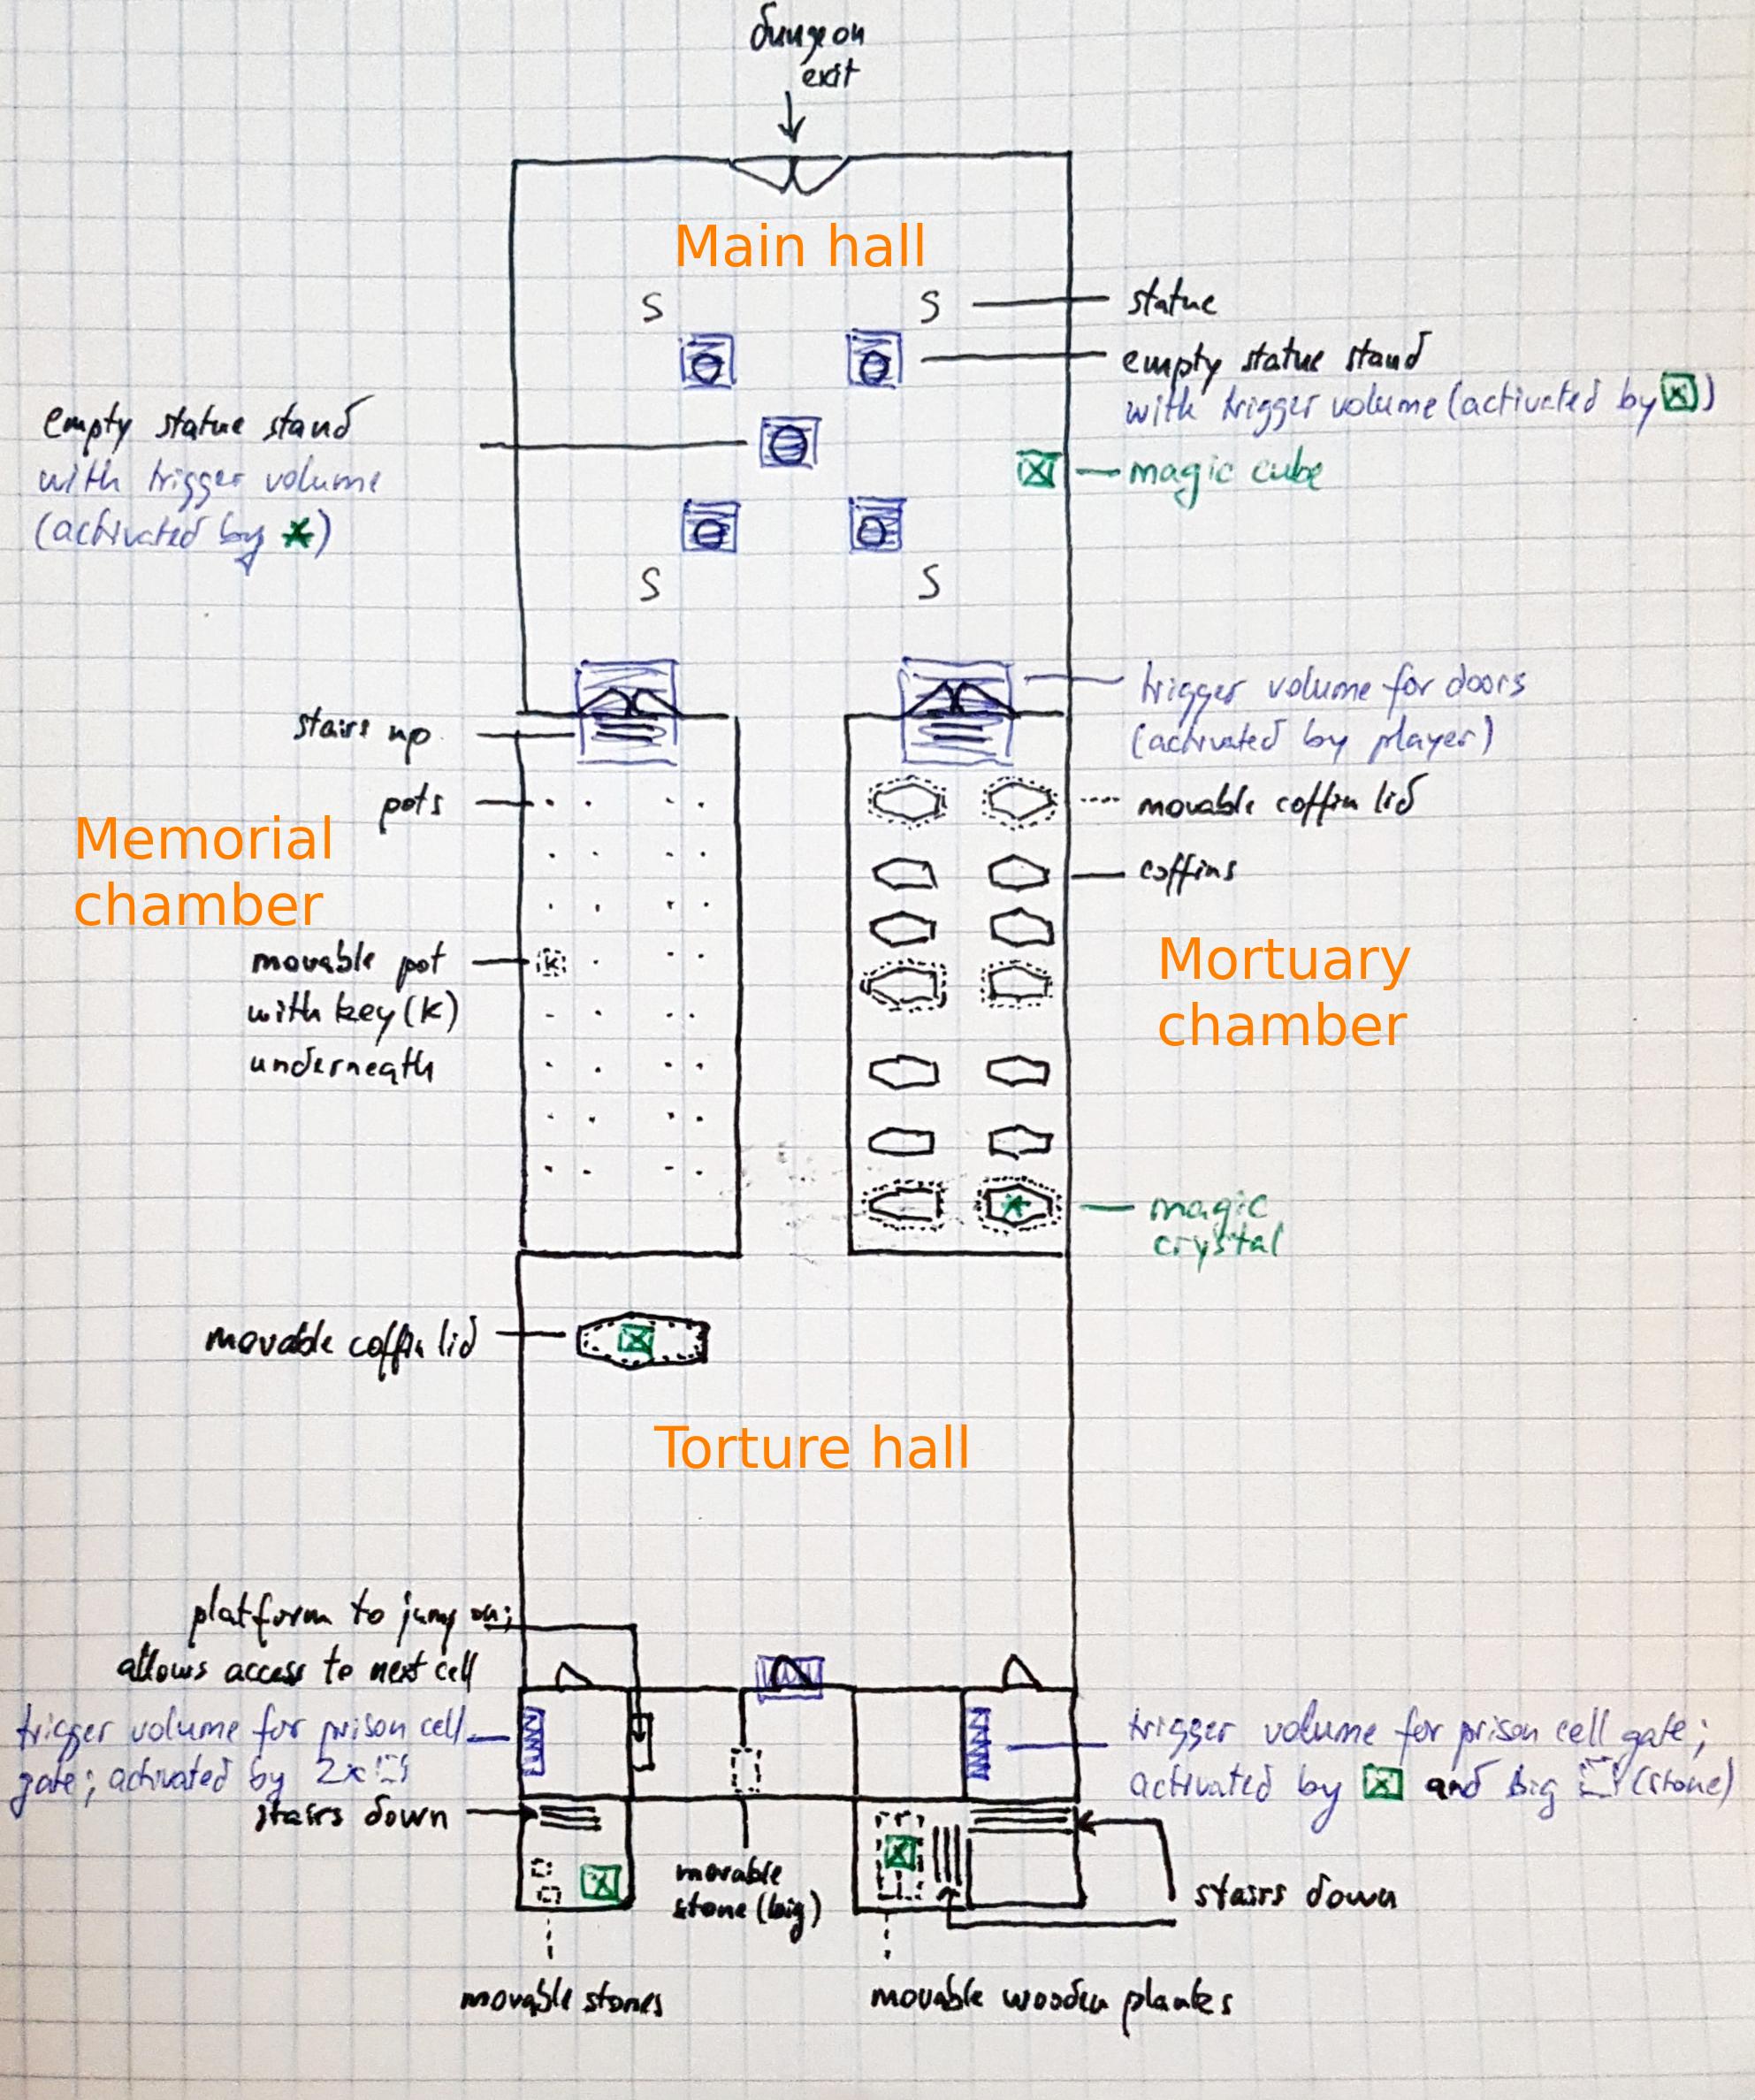 dungeon
exit
Main hall
S S
statue
empty statue stand
with trigger volume (activated by )
empty statue stand
with trigger volume
(activated by )
magic cube
S S
trigger volume for doors
(activated by player)
stairs up
pots
movable coffin lid
Memorial
chamber
coffins
movable pot
with key (K)
underneath
K
Mortuary
chamber
magic
crystal
movable coffin lid
Torture hall
platform to jump on;
allows access to next cell
trigger volume for prison cell
gate; activated by 2x
trigger volume for prison cell gate;
activated by and big (stone)
stairs down
movable
stone (big)
stairs down
movable stones
movable wooden planks